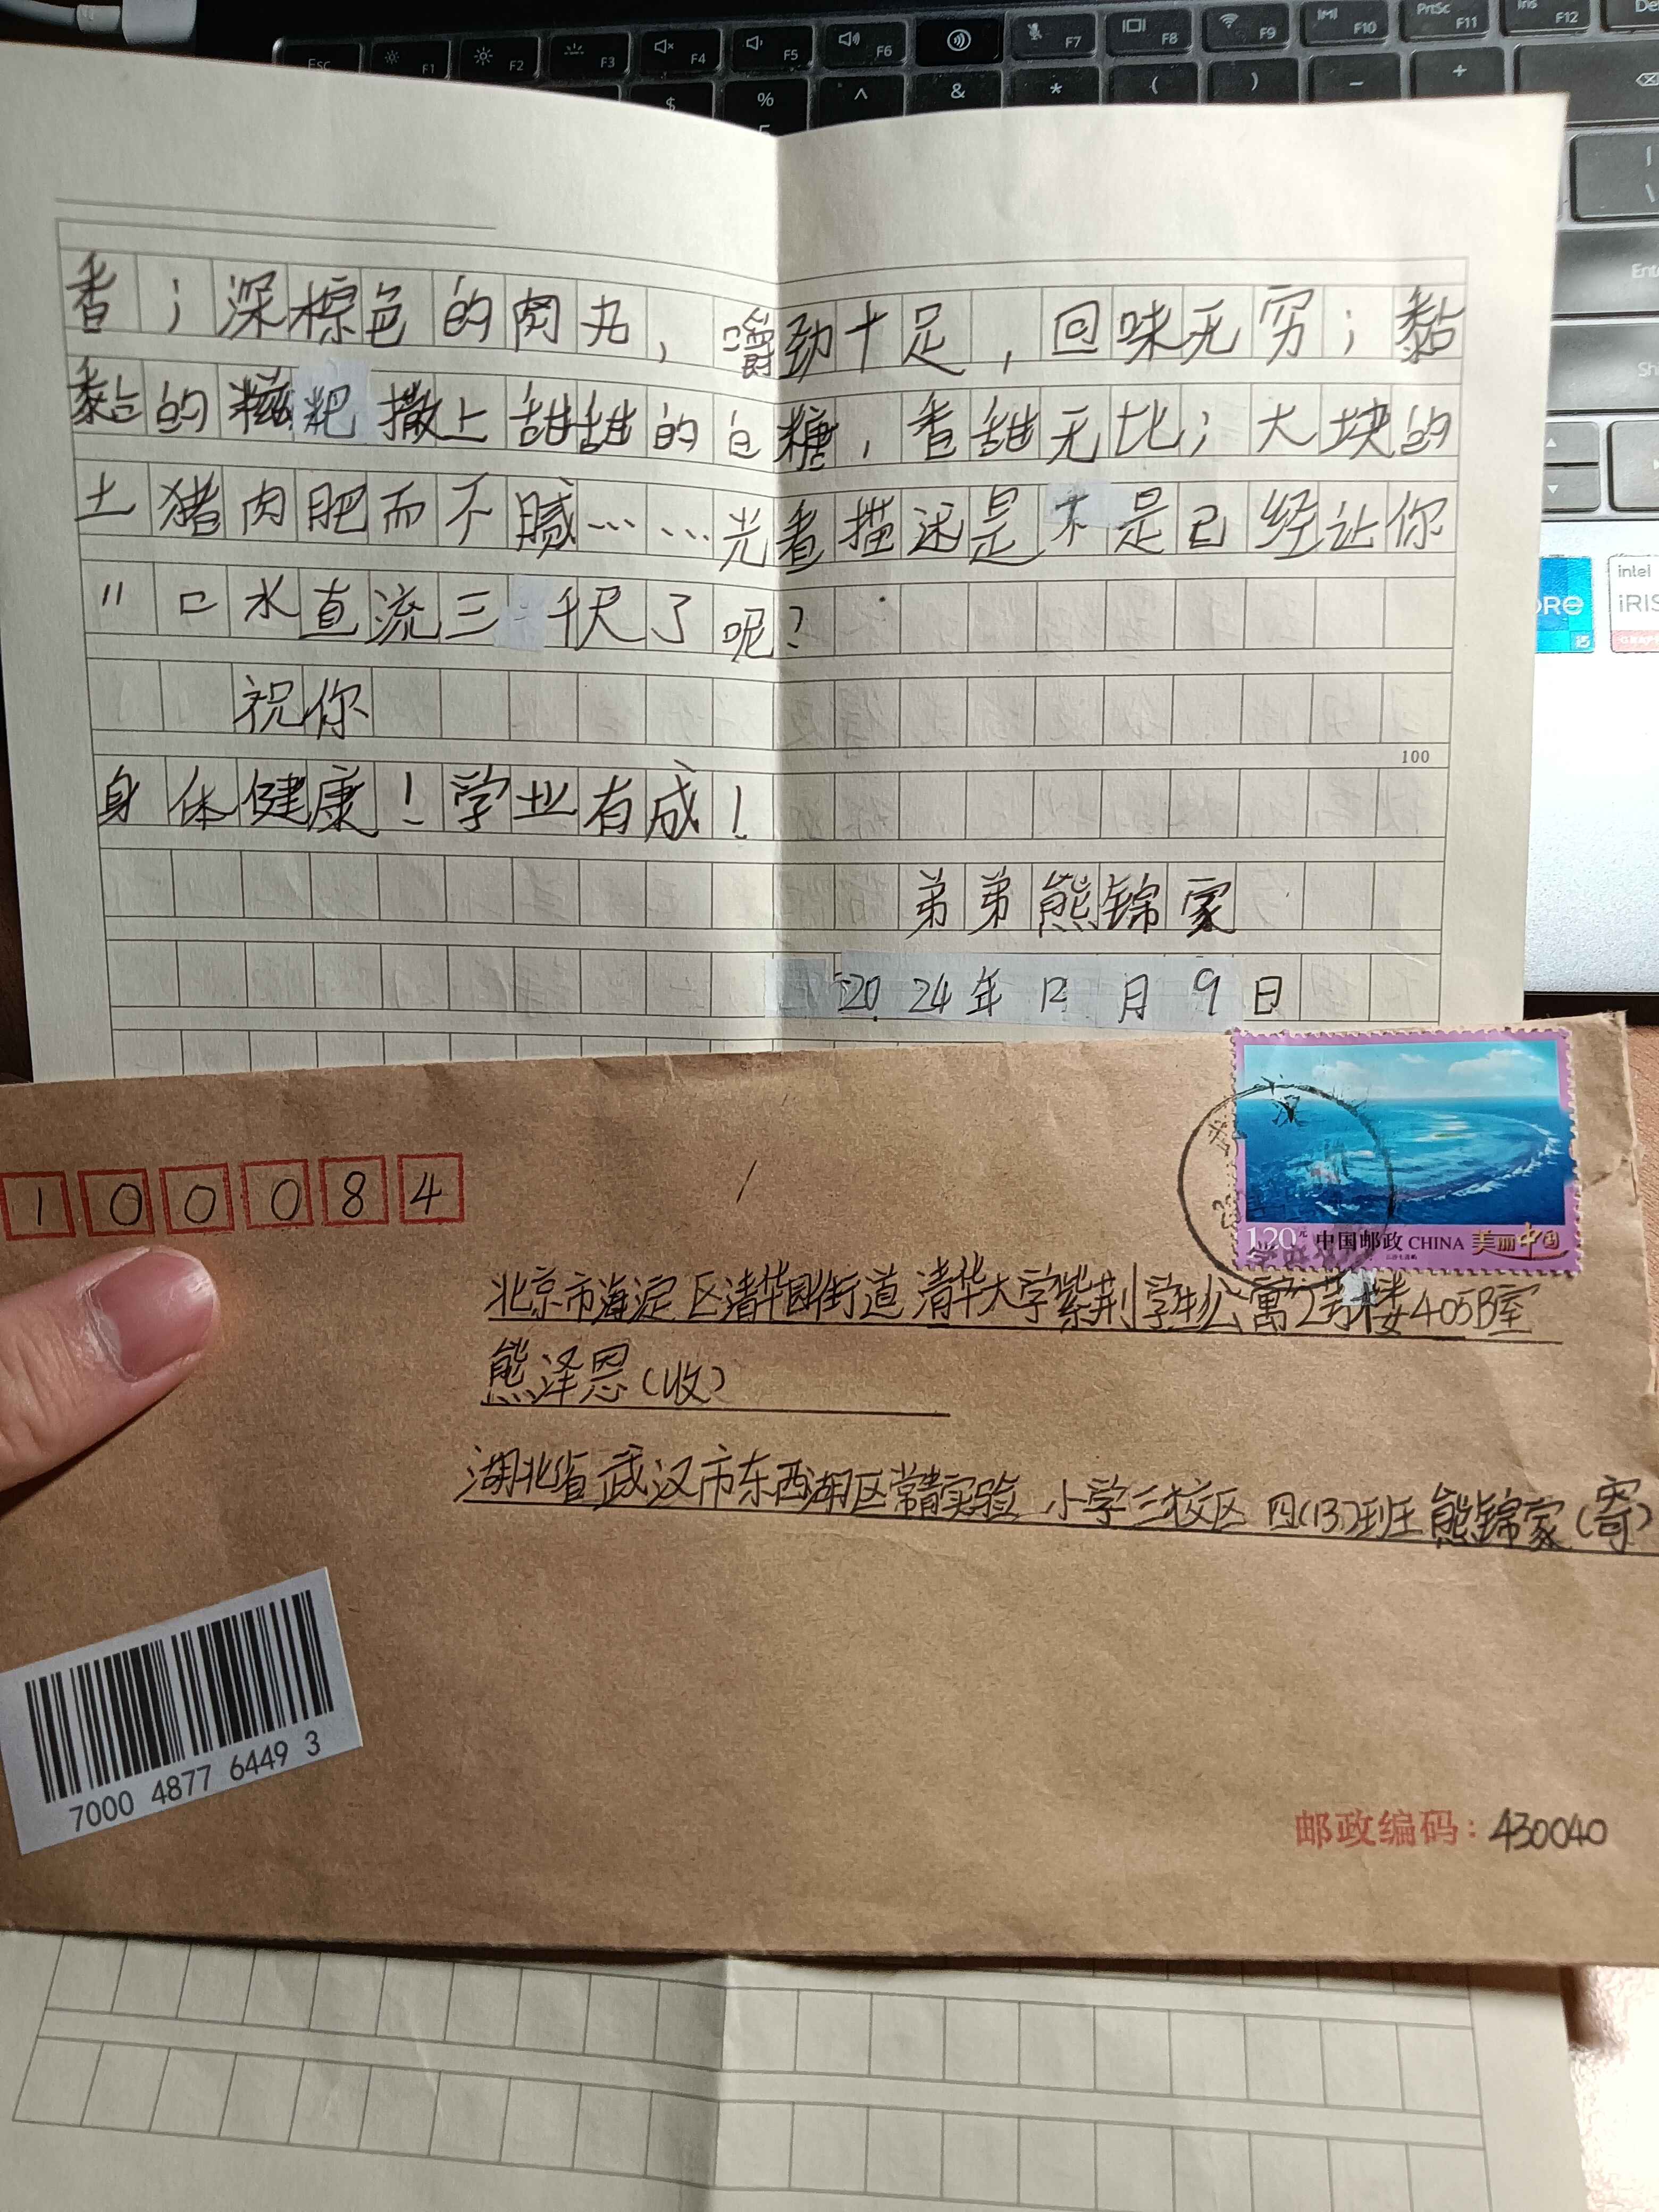 Esc F1 F2 F3 F4 F5 F6 F7 F8 F9 F10 PrtSc F11 Ins F12 Del
$ % ^ & * ( ) - +
香；深棕色的肉丸，嚼劲十足，回味无穷；黏
黏的糍粑撒上甜甜的白糖，香甜无比；大块的
土猪肉肥而不腻……光看描述是不是已经让你
"口水直流三千尺了呢？
祝你
100
身体健康！学业有成！
弟弟熊锦家
2024年12月9日
intel
iRIS
100084
1.20元 中国邮政 CHINA 美丽中国
北京市海淀区清华园街道清华大学紫荆学生公寓2号楼405B室
熊泽恩（收）
湖北省武汉市东西湖区常青实验小学三校区四(13)班熊锦家（寄）
7000 4877 6449 3
邮政编码：430040